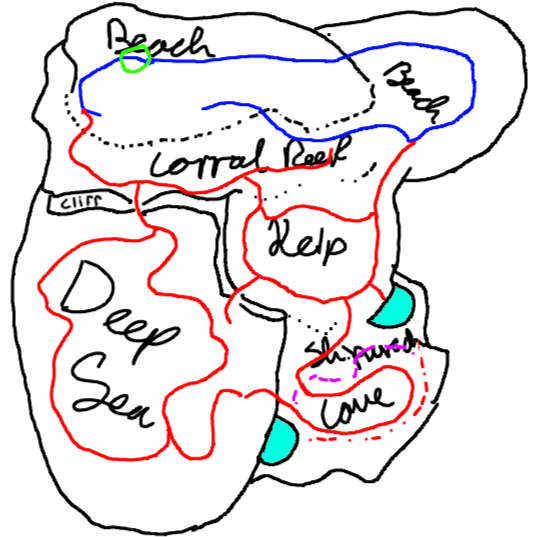 Beach
Beach
Corral Reef
cliff
Kelp
Deep
Sea
Shipwreck
Cave